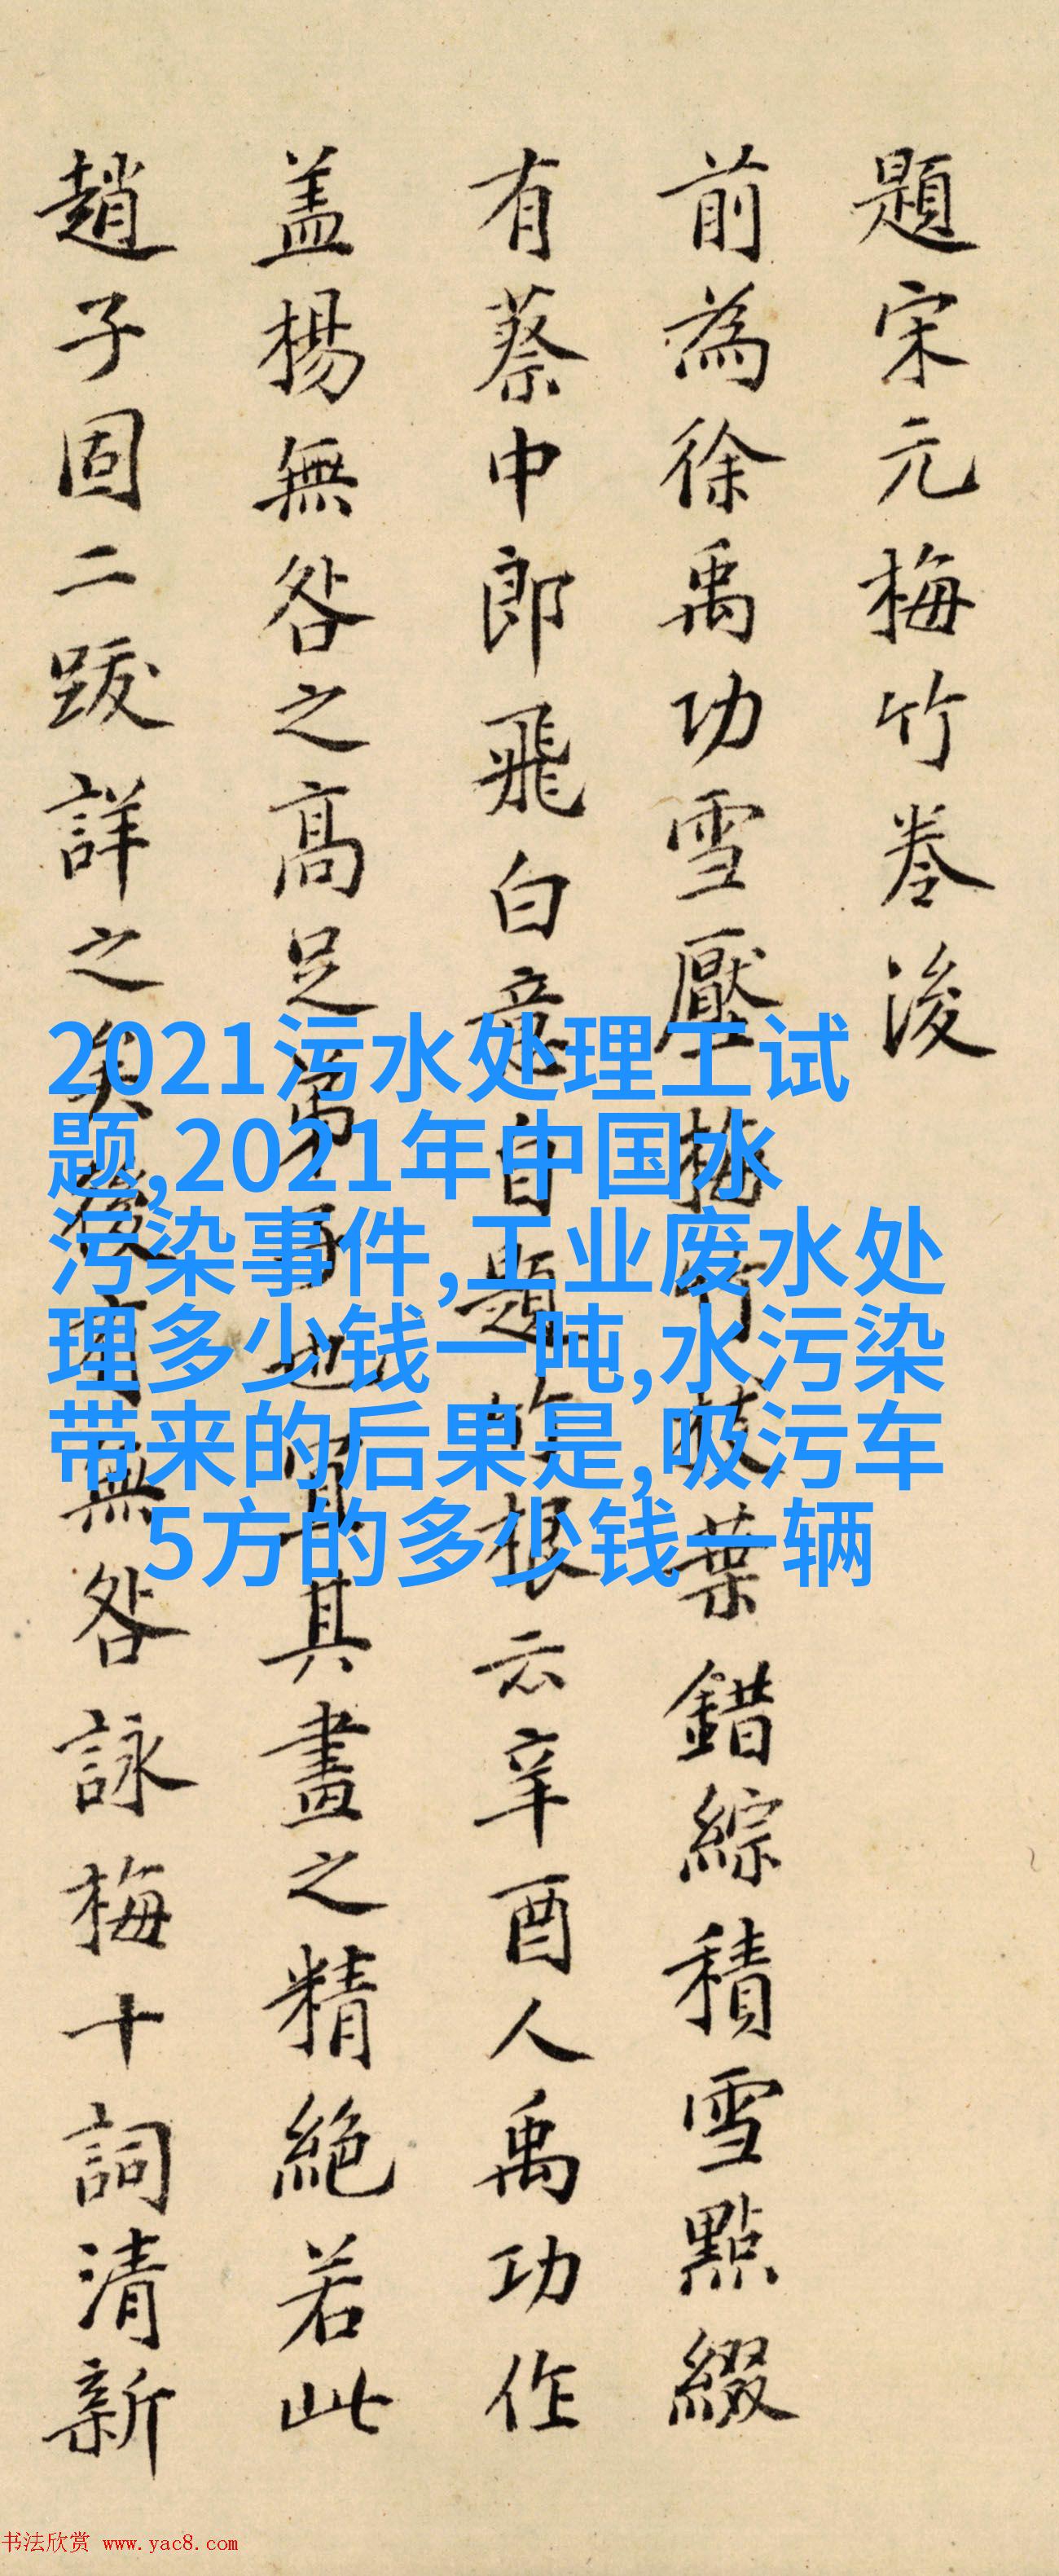 題宋元梅竹卷後
前為徐禹功雪壓梅竹枝葉錯綜積雪點綴
有蔡中郎飛白意自題竹根云辛酉人禹功作
盖楊無咎之高足
其畫之精絕若此
趙子固二跋詳之矣後有無咎詠梅十詞清新
2021污水处理工试
题,2021年中国水
污染事件,工业废水处
理多少钱一吨,水污染
带来的后果是,吸污车
5方的多少钱一辆
书法欣赏 www.yac8.com